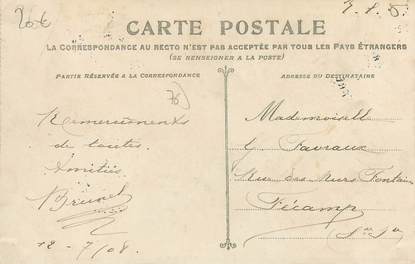 20€
7. 1. 5.
CARTE POSTALE
LA CORRESPONDANCE AU RECTO N'EST PAS ACCEPTÉE PAR TOUS LES PAYS ÉTRANGERS
(SE RENSEIGNER A LA POSTE)
PARTIE RÉSERVÉE A LA CORRESPONDANCE
ADRESSE DU DESTINATAIRE
76
Remerciements
de toutes
Amitiés
Brunel
12-7/08.
Mademoiselle
Y Favraux
Rue des Murs Fontain
Fécamp
Sne Inre